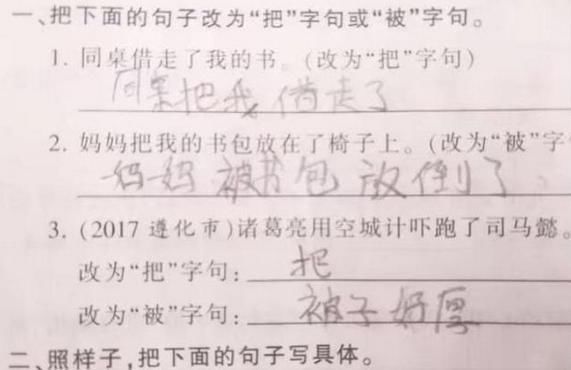 一、把下面的句子改为“把”字句或“被”字句。
1. 同桌借走了我的书。(改为“把”字句)
同桌把我借走了
2. 妈妈把我的书包放在了椅子上。(改为“被”字
妈妈被书包放倒了
3. (2017 遵化市)诸葛亮用空城计吓跑了司马懿。
改为“把”字句: 把
改为“被”字句: 被子好厚
二、照样子,把下面的句子写具体。